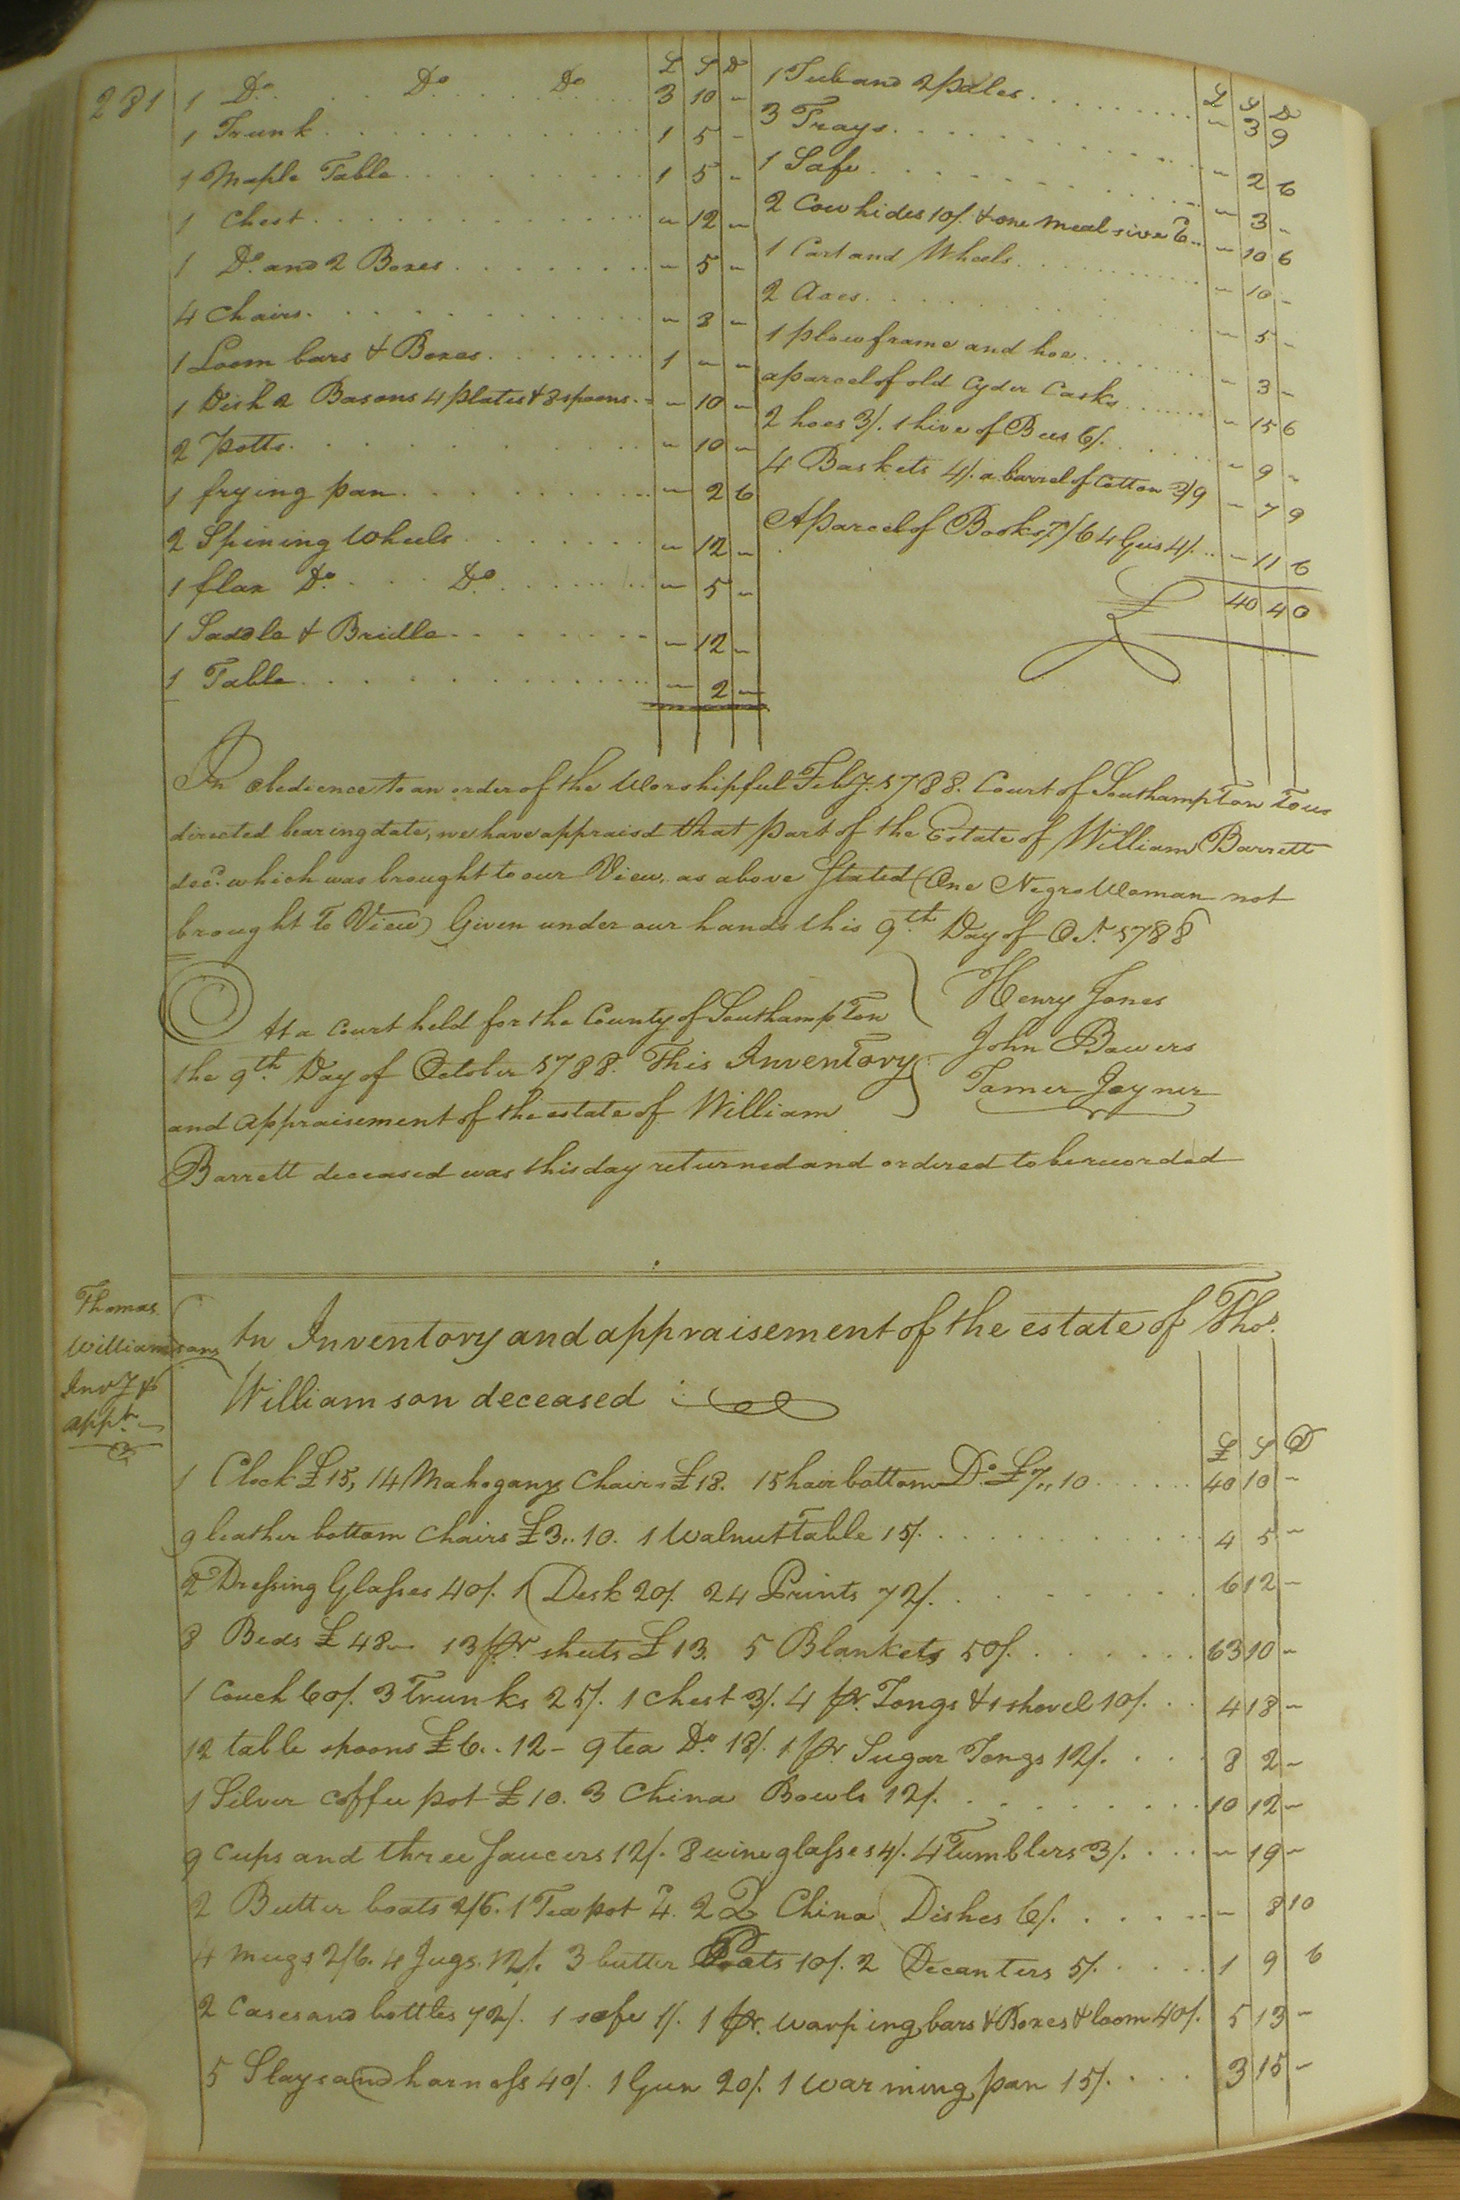 281
£ S D
1 Do. Do. Do 3 10 -
1 Trunk 1 5 -
1 Maple Table 1 5 -
1 Chest - 12 -
1 Do. and 2 Boxes - 5 -
4 Chairs - 8 -
1 Loom bars & Boxes 1 - -
1 Dish 2 Basons 4 plates & 8 spoons - 10 -
2 Potts - 10 -
1 frying pan - 2 6
2 Spining Wheels - 12 -
1 flax Do. Do. - 5 -
1 Saddle & Bridle - 12 -
1 Table - 2 -
£ S D
1 Tub and 2 Pales - 3 9
3 Trays - 2 6
1 Safe - 3 -
2 Cow hides 10/. & one meal sive 6 - 10 6
1 Cart and Wheels - 10 -
2 Axes - 5 -
1 plow frame and hoe - 3 -
a parcel of old Cyder Casks - 15 6
2 hoes 3/. 1 hive of Bees 6/. - 9 -
4 Baskets 4/. a barrel of Cotton 3/9 - 7 9
A Parcel of Books 7/6 4 Gees 4/. - 11 6
£ 40 4 0
In obedience to an order of the Worshipful Feby. 1788. Court of Southampton to us
directed bearing date, we have appraisd that part of the Estate of William Barrett
decd. which was brought to our View, as above Stated (One Negro Woman not
brought to View) Given under our hands this 9th. Day of Ct. 1788
Henry Jones
John Bowers
Tamer Joyner
At a Court held for the County of Southampton
the 9th. Day of October 1788. This Inventory
and appraisement of the estate of William
Barrett deceased was this day returned and ordered to be recorded
Thomas
Williamsons
Invy &
appt.
An Inventory and appraisement of the estate of Thos.
Williamson deceased
£ S D
1 Clock £15, 14 Mahogany Chairs £18. 15 hair bottom Do. £7,,10 40 10 -
9 leather bottom Chairs £3,,10. 1 Walnut table 15/. 4 5 -
2 Dressing Glasses 40/. 1 Desk 20/. 24 Prints 72/. 6 12 -
8 Beds £48 - 13 pr. sheets £13. 5 Blankets 50/. 63 10 -
1 Couch 60/. 3 Trunks 25/. 1 Chest 3/. 4 pr. Tongs & 1 shovel 10/. 4 18 -
12 table spoons £6..12 - 9 tea Do. 18/. 1 pr. Sugar Tongs 12/. 8 2 -
1 Silver coffee pot £10. 3 China Bowls 12/. 10 12 -
9 Cups and three Saucers 12/. 8 wine glasses 4/. 4 Tumblers 3/. - 19 -
2 Butter boats 2/6. 1 Tea pot 4. 2 China Dishes 6/. - 8 10
4 Mugs 2/6. 4 Jugs 12/. 3 butter Poats 10/. 2 Decanters 5/. 1 9 6
2 Cases and bottles 72/. 1 safe 1/. 1 pr. warping bars & Boxes & loom 40/. 5 13 -
5 Slays and harness 40/. 1 Gun 20/. 1 warming pan 15/. 3 15 -